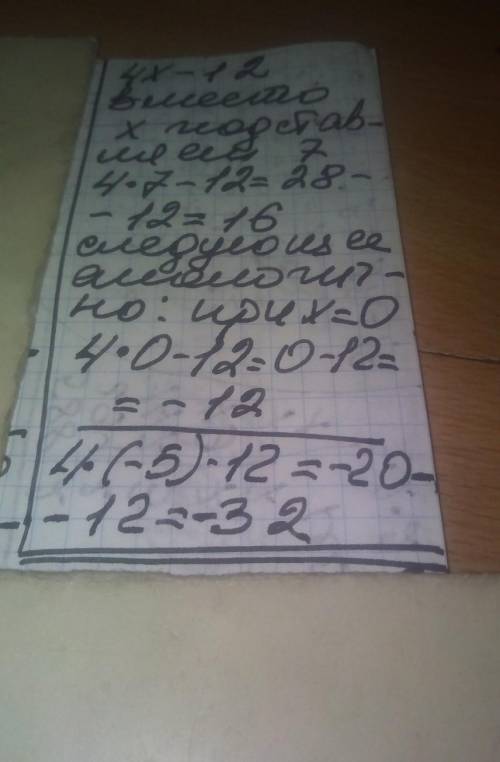 4х-12
вместо
х подстав-
ляем 7
4·7-12=28-
-12=16
следующее
аналогич-
но: при х=0
4·0-12=0-12=
=-12
4·(-5)-12=-20-
-12=-32